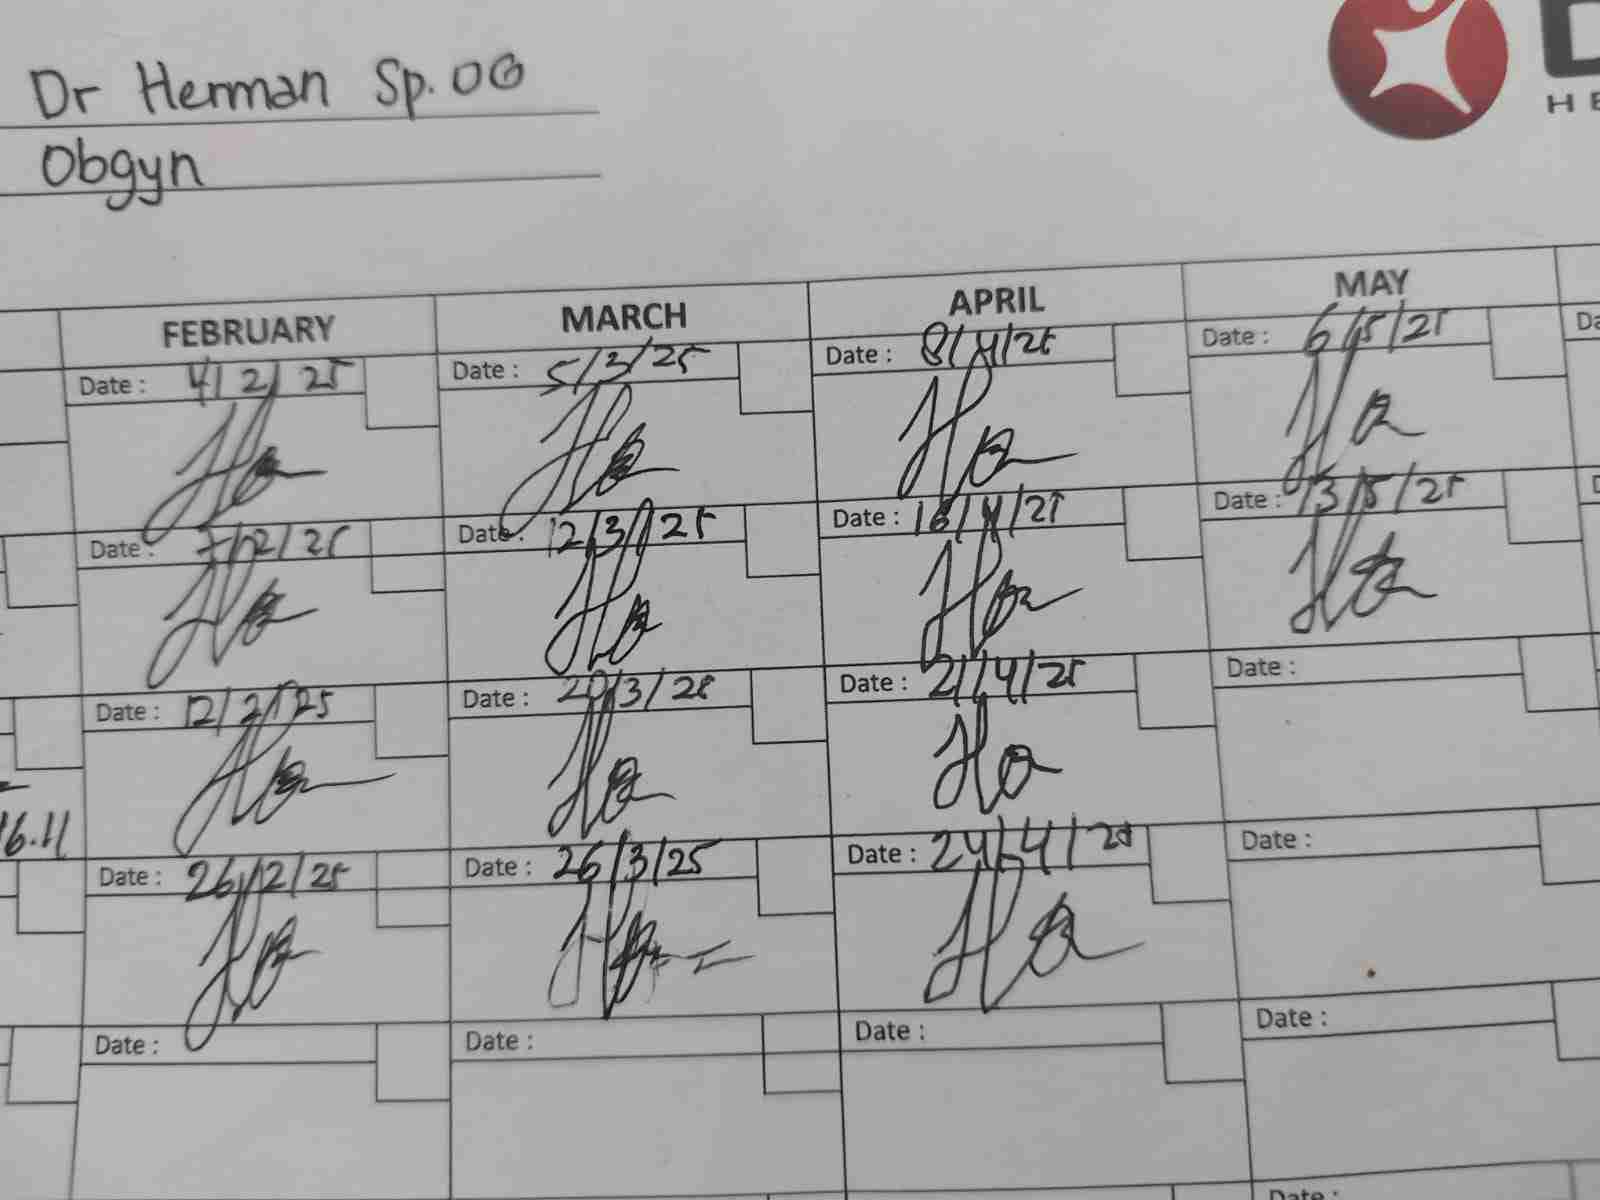 Dr Herman Sp.OG
Obgyn
HE
FEBRUARY MARCH APRIL MAY
Date : 4/2/25 Date : 5/3/25 Date : 8/4/25 Date : 6/5/25
Date : 7/2/25 Date : 12/3/25 Date : 16/4/25 Date : 13/5/25
Date : 12/2/25 Date : 20/3/25 Date : 21/4/25 Date :
16.11
Date : 26/2/25 Date : 26/3/25 Date : 24/4/25 Date :
Date : Date : Date : Date :
Date :